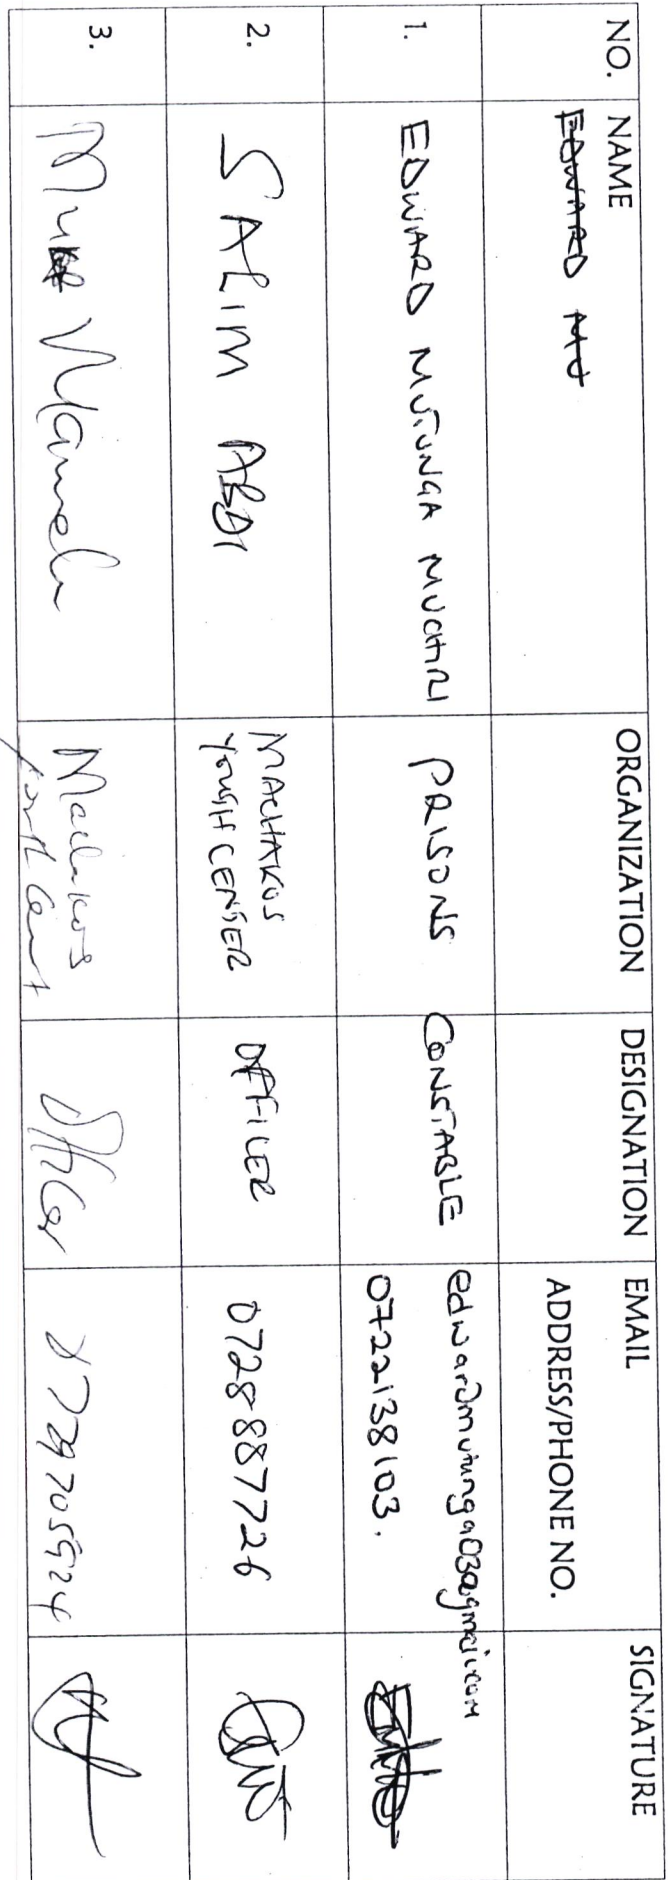 NO. NAME ORGANIZATION DESIGNATION EMAIL ADDRESS/PHONE NO. SIGNATURE
EDWARD MU
1. EDWARD MUTUNGA MUCHIRI PRISONS CONSTABLE edwardmutunga03@gmai.com
0722138103.
2. SALIM ABDI MACHAKOS YOUTH CENTER OFFICER 0728887726
3. Machakos Officer